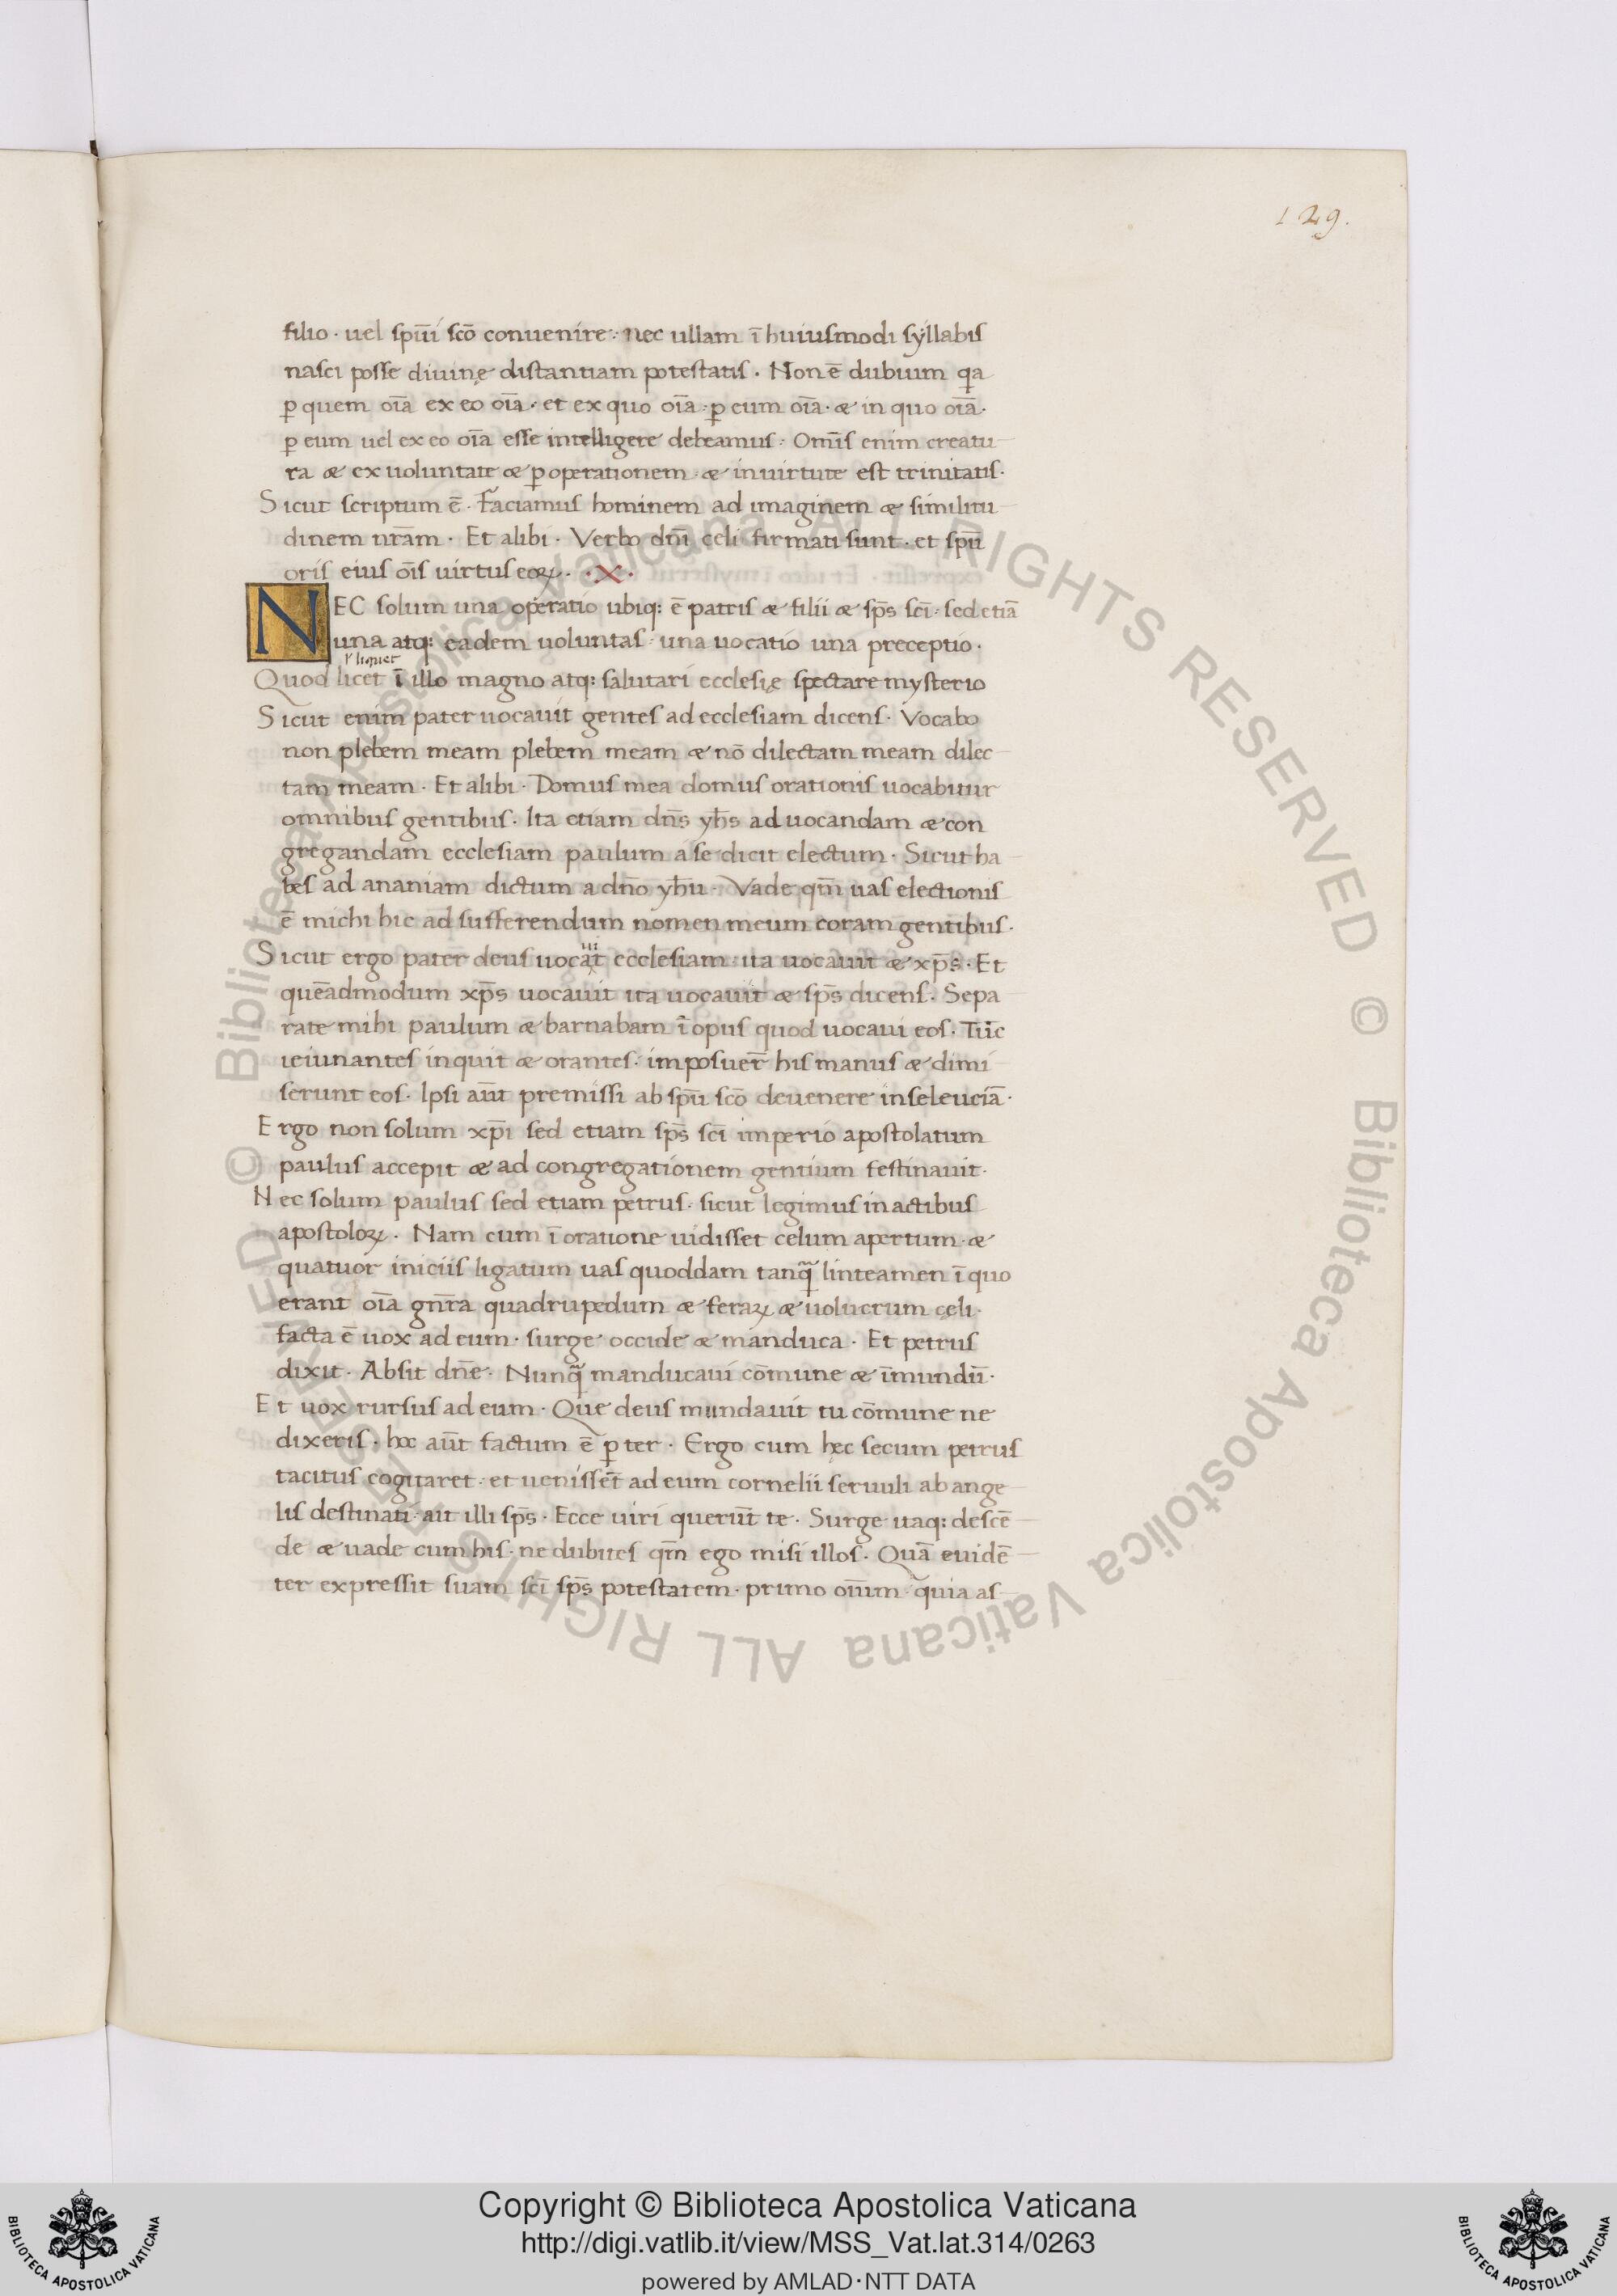 129.
filio · uel spūi scō conuenire · nec ullam ī huiusmodi syllabis
nasci posse diuinę distantiam potestatis · Non ē dubium qa
ꝑ quem oīa ex eo oīa · et ex quo oīa · ꝑ eum oīa · & in quo oīa ·
ꝑ eum uel ex eo oīa esse intelligere debeamus · Omīs enim creatu
ra & ex uoluntate & ꝑ operationem · & in uirtute est trinitatis ·
Sicut scriptum ē · Faciamus hominem ad imaginem & similitu
dinem nrām · Et alibi · Verbo dnī celi firmati sunt · et spū
oris eius oīs uirtus eoꝝ · · X ·
NEC solum una operatio ubiq: ē patris & filii & sp̄s scī · sed etiā
una atq: eadem uoluntas · una uocatio una preceptio ·
ł liquet
Quod licet ī illo magno atq: salutari ecclesię spectare mysterio
Sicut enim pater uocauit gentes ad ecclesiam dicens · Vocabo
non plebem meam plebem meam & nō dilectam meam dilec
tam meam · Et alibi · Domus mea domus orationis uocabitur
omnibus gentibus · Ita etiam dn̄s yh̄s ad uocandam & con
gregandam ecclesiam paulum a se dicit electum · Sicut ha
bes ad ananiam dictum a dn̄o yh̄u · Vade qm̄ uas electionis
ē michi hic ad sufferendum nomen meum coram gentibus ·
Sicut ergo pater deus uocauit ecclesiam · ita uocauit & xp̄s · Et
quēadmodum xp̄s uocauit ita uocauit & sp̄s dicens · Sepa
rate mihi paulum & barnabam ī opus quod uocaui eos · Tūc
ieiunantes inquit & orantes · imposuer̄ his manus & dimi
serunt eos · Ipsi aūt premissi ab spū scō deuenere in seleuciā ·
Ergo non solum xp̄i sed etiam sp̄s scī imperio apostolatum
paulus accepit & ad congregationem gentium festinauit ·
Nec solum paulus sed etiam petrus · sicut legimus in actibus
apostoloꝝ · Nam cum ī oratione uidisset celum apertum · &
quatuor iniciis ligatum uas quoddam tanq̄ linteamen ī quo
erant oīa gn̄ra quadrupedum & feraꝝ & uolucrum cęli ·
facta ē uox ad eum · surge occide & manduca · Et petrus
dixit · Absit dn̄e · Nunq̄ manducaui cōmune & īmundū ·
Et uox rursus ad eum · Que deus mundauit tu cōmune ne
dixeris · hoc aūt factum ē ꝑ ter · Ergo cum hęc secum petrus
tacitus cogitaret · et uenissēt ad eum cornelii seruuli ab ange
lis destinati · ait illi sp̄s · Ecce uiri querūt te · Surge itaq: descē
de & uade cum his · ne dubites qm̄ ego misi illos · Quā euidē
ter expressit suam scī sp̄s potestatem · primo oīum · quia as
© Biblioteca Apostolica Vaticana ALL RIGHTS RESERVED © Biblioteca Apostolica Vaticana ALL RIGHTS RESERVED
BIBLIOTECA APOSTOLICA VATICANA
Copyright © Biblioteca Apostolica Vaticana
http://digi.vatlib.it/view/MSS_Vat.lat.314/0263
powered by AMLAD·NTT DATA
BIBLIOTECA APOSTOLICA VATICANA